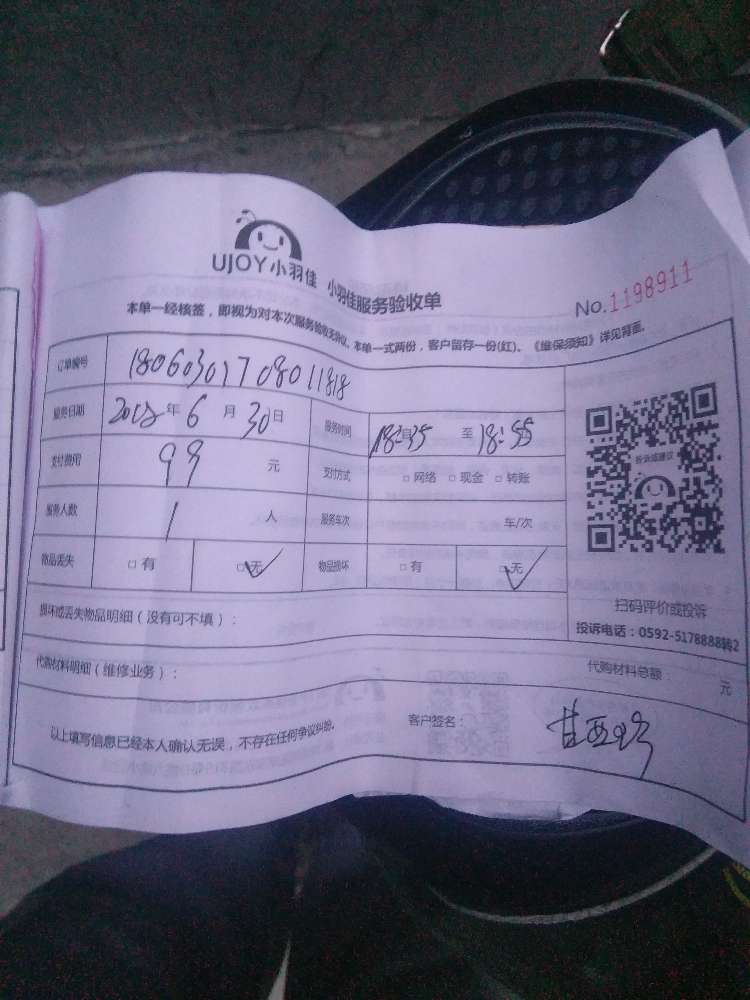 UJOY小羽佳 小羽佳服务验收单
No.1198911
本单一经核签，即视为对本次服务验收无异议。本单一式两份，客户留存一份(红)。《维保须知》详见背面。
订单编号 180603017080 11818
服务日期 2018年6月30日 服务时间 18:35 至 18:55
支付费用 99 元 支付方式 □网络 □现金 □转账
服务人数 1 人 服务车次 车/次
物品丢失 □有 □无 物品损坏 □有 □无
投诉或建议
扫码评价或投诉
投诉电话：0592-5178888转2
损坏或丢失物品明细（没有可不填）：
代购材料明细（维修业务）： 代购材料总额： 元
以上填写信息已经本人确认无误，不存在任何争议纠纷。 客户签名：